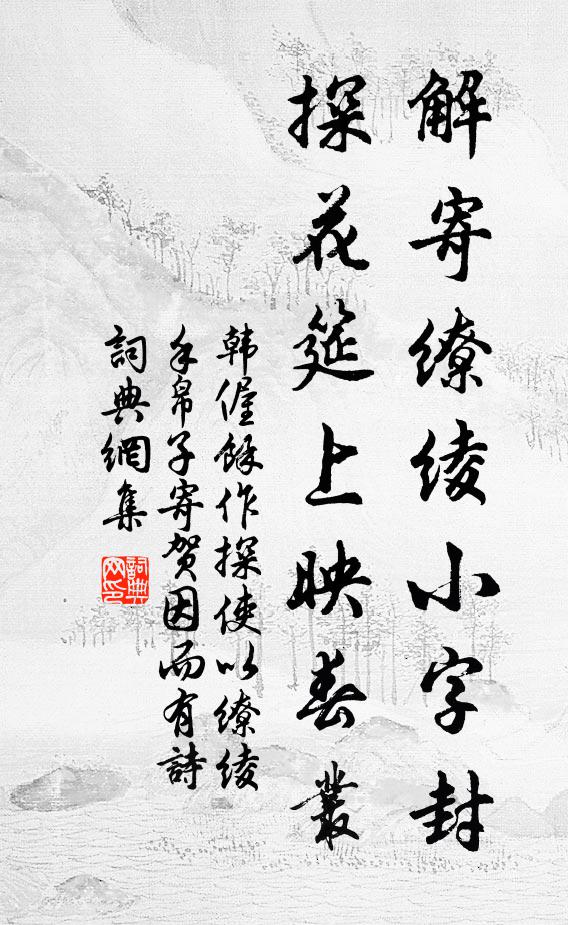 解寄繚綾小字封
探花筵上映春叢
韓偓餘作探使以繚綾
手帛子寄贺因而有詩
詞典網集
詞典
网印